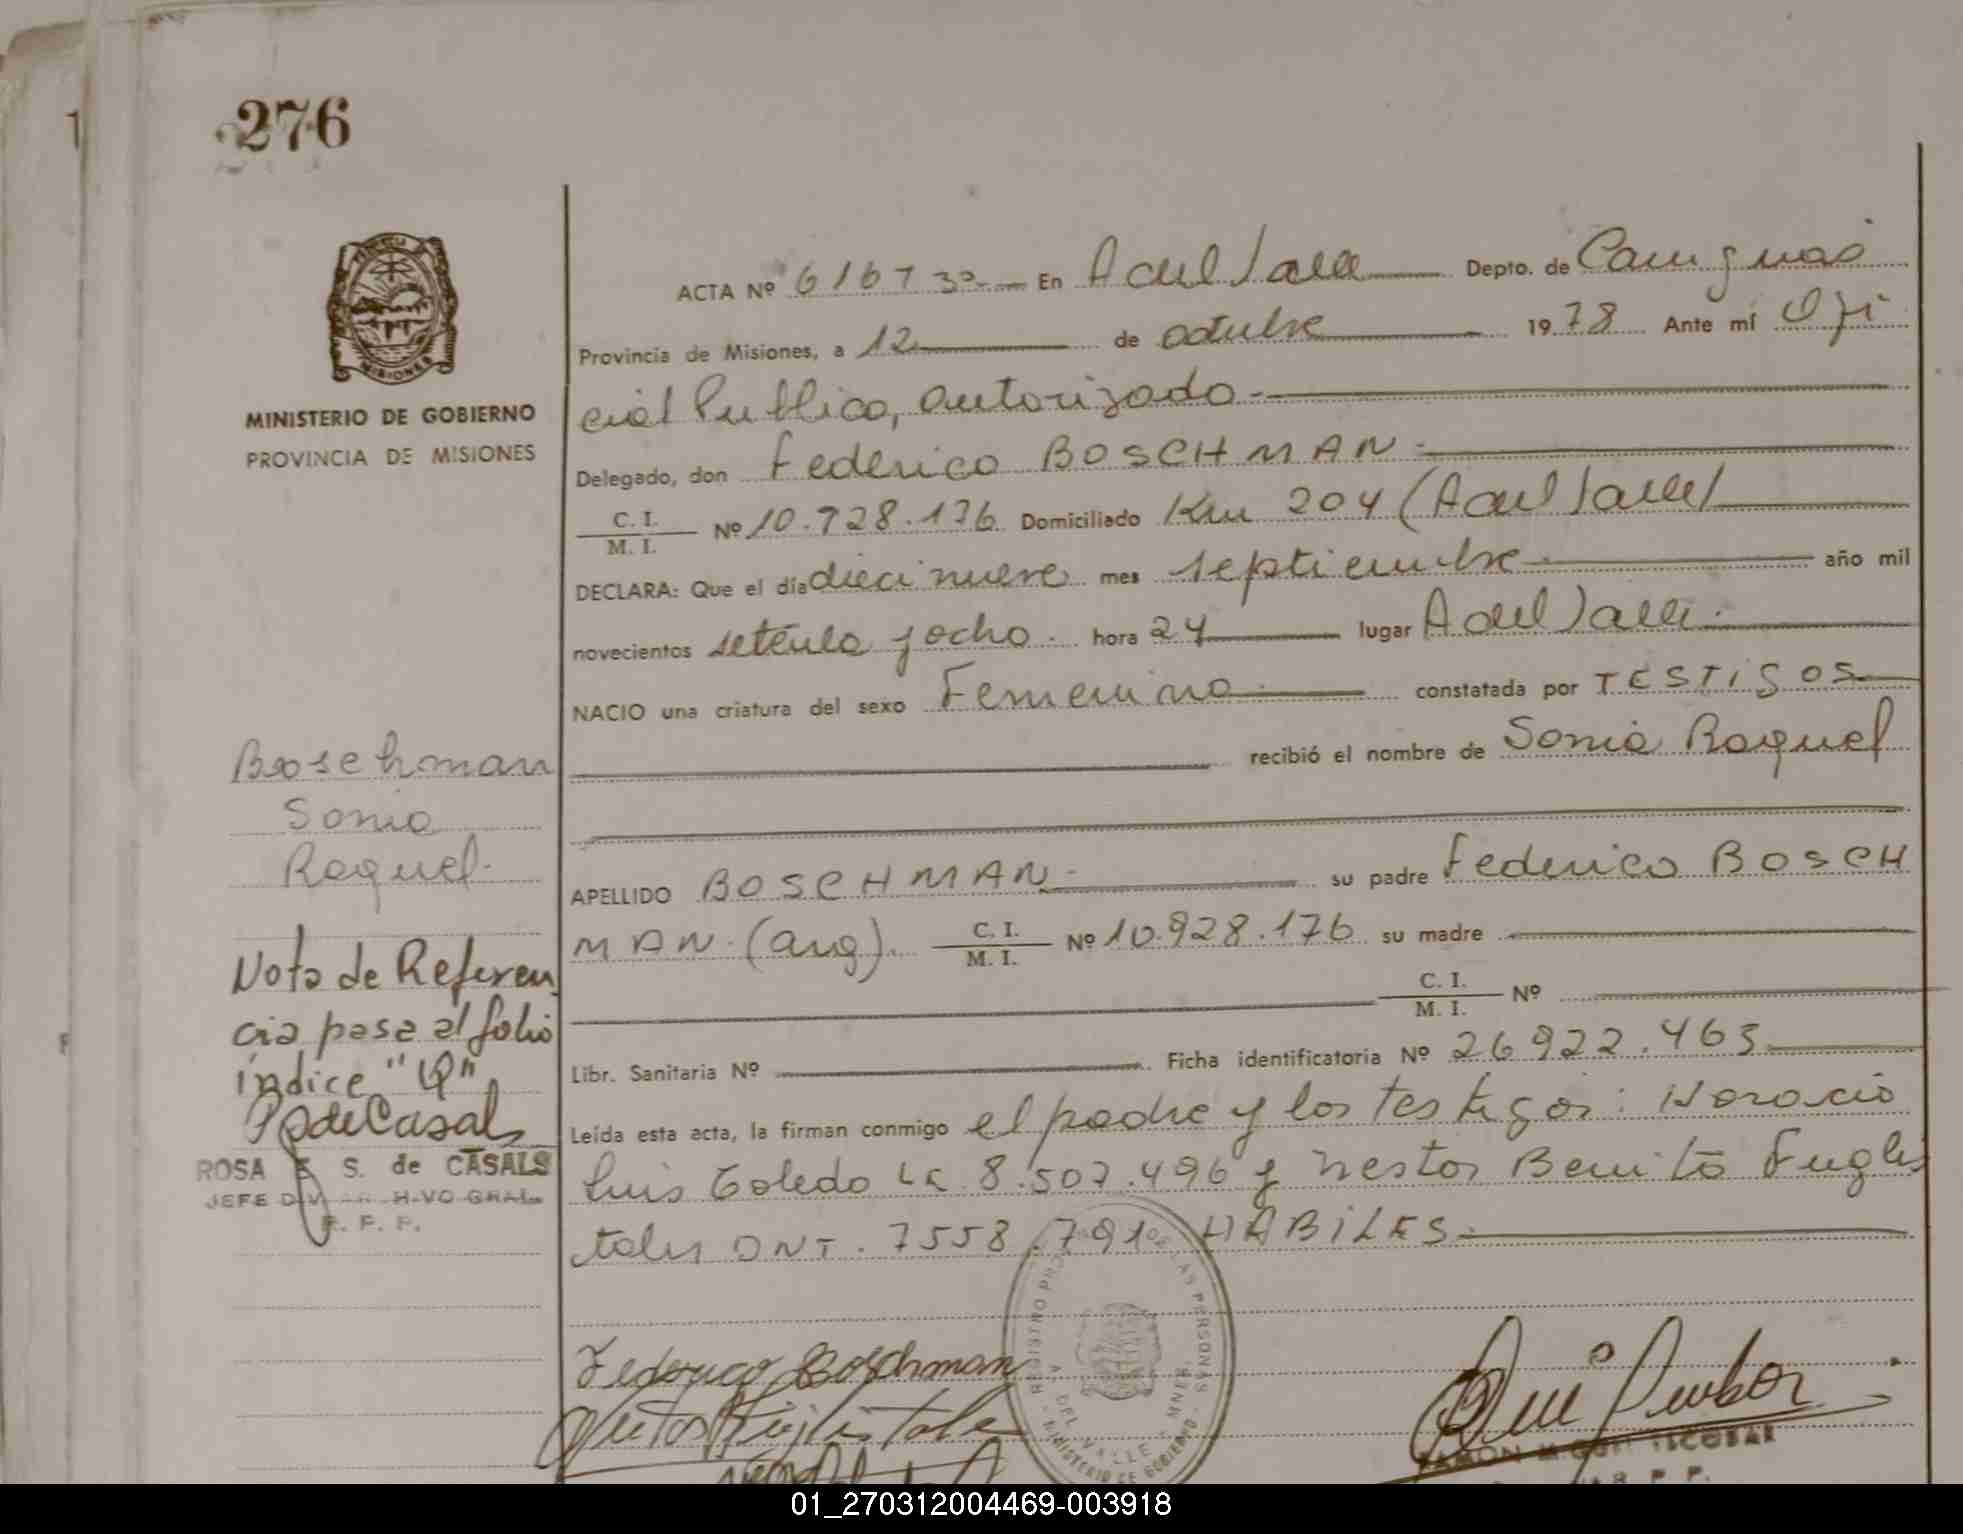 276
MINISTERIO DE GOBIERNO
PROVINCIA DE MISIONES
ACTA Nº 6167 3º En A del Valle Depto. de Cainguás
Provincia de Misiones, a 12 de octubre 1978 Ante mí Ofi
cial Publico, autorizado.-
Delegado, don Federico BOSCHMAN.-
C. I.
M. I.
Nº 10.928.176 Domiciliado Km 204 (A del Valle)
DECLARA: Que el día diecinueve mes septiembre año mil
novecientos setenta y ocho. hora 24 lugar A del Valle.
NACIO una criatura del sexo Femenino. constatada por TESTIGOS
recibió el nombre de Sonia Raquel
APELLIDO BOSCHMAN.- su padre Federico BOSCH
MAN. (arg). C. I.
M. I.
Nº 10.928.176 su madre
C. I.
M. I.
Nº
Libr. Sanitaria Nº Ficha identificatoria Nº 26922.463
Leída esta acta, la firman conmigo el padre y los testigos: Horacio
Luis Toledo LE 8.507.496 y Nestor Benito
DNI. 7558.791 HABILES.
Boschman
Sonia
Raquel.
Nota de Referen
cia pasa al folio
indice "Q"
ROSA E S. de CASALS
JEFE
Federico Boschman
REGISTRO PROV. DE LAS PERSONAS
A. DEL VALLE
MINISTERIO DE GOBIERNO
ESCOBAR
01_270312004469-003918